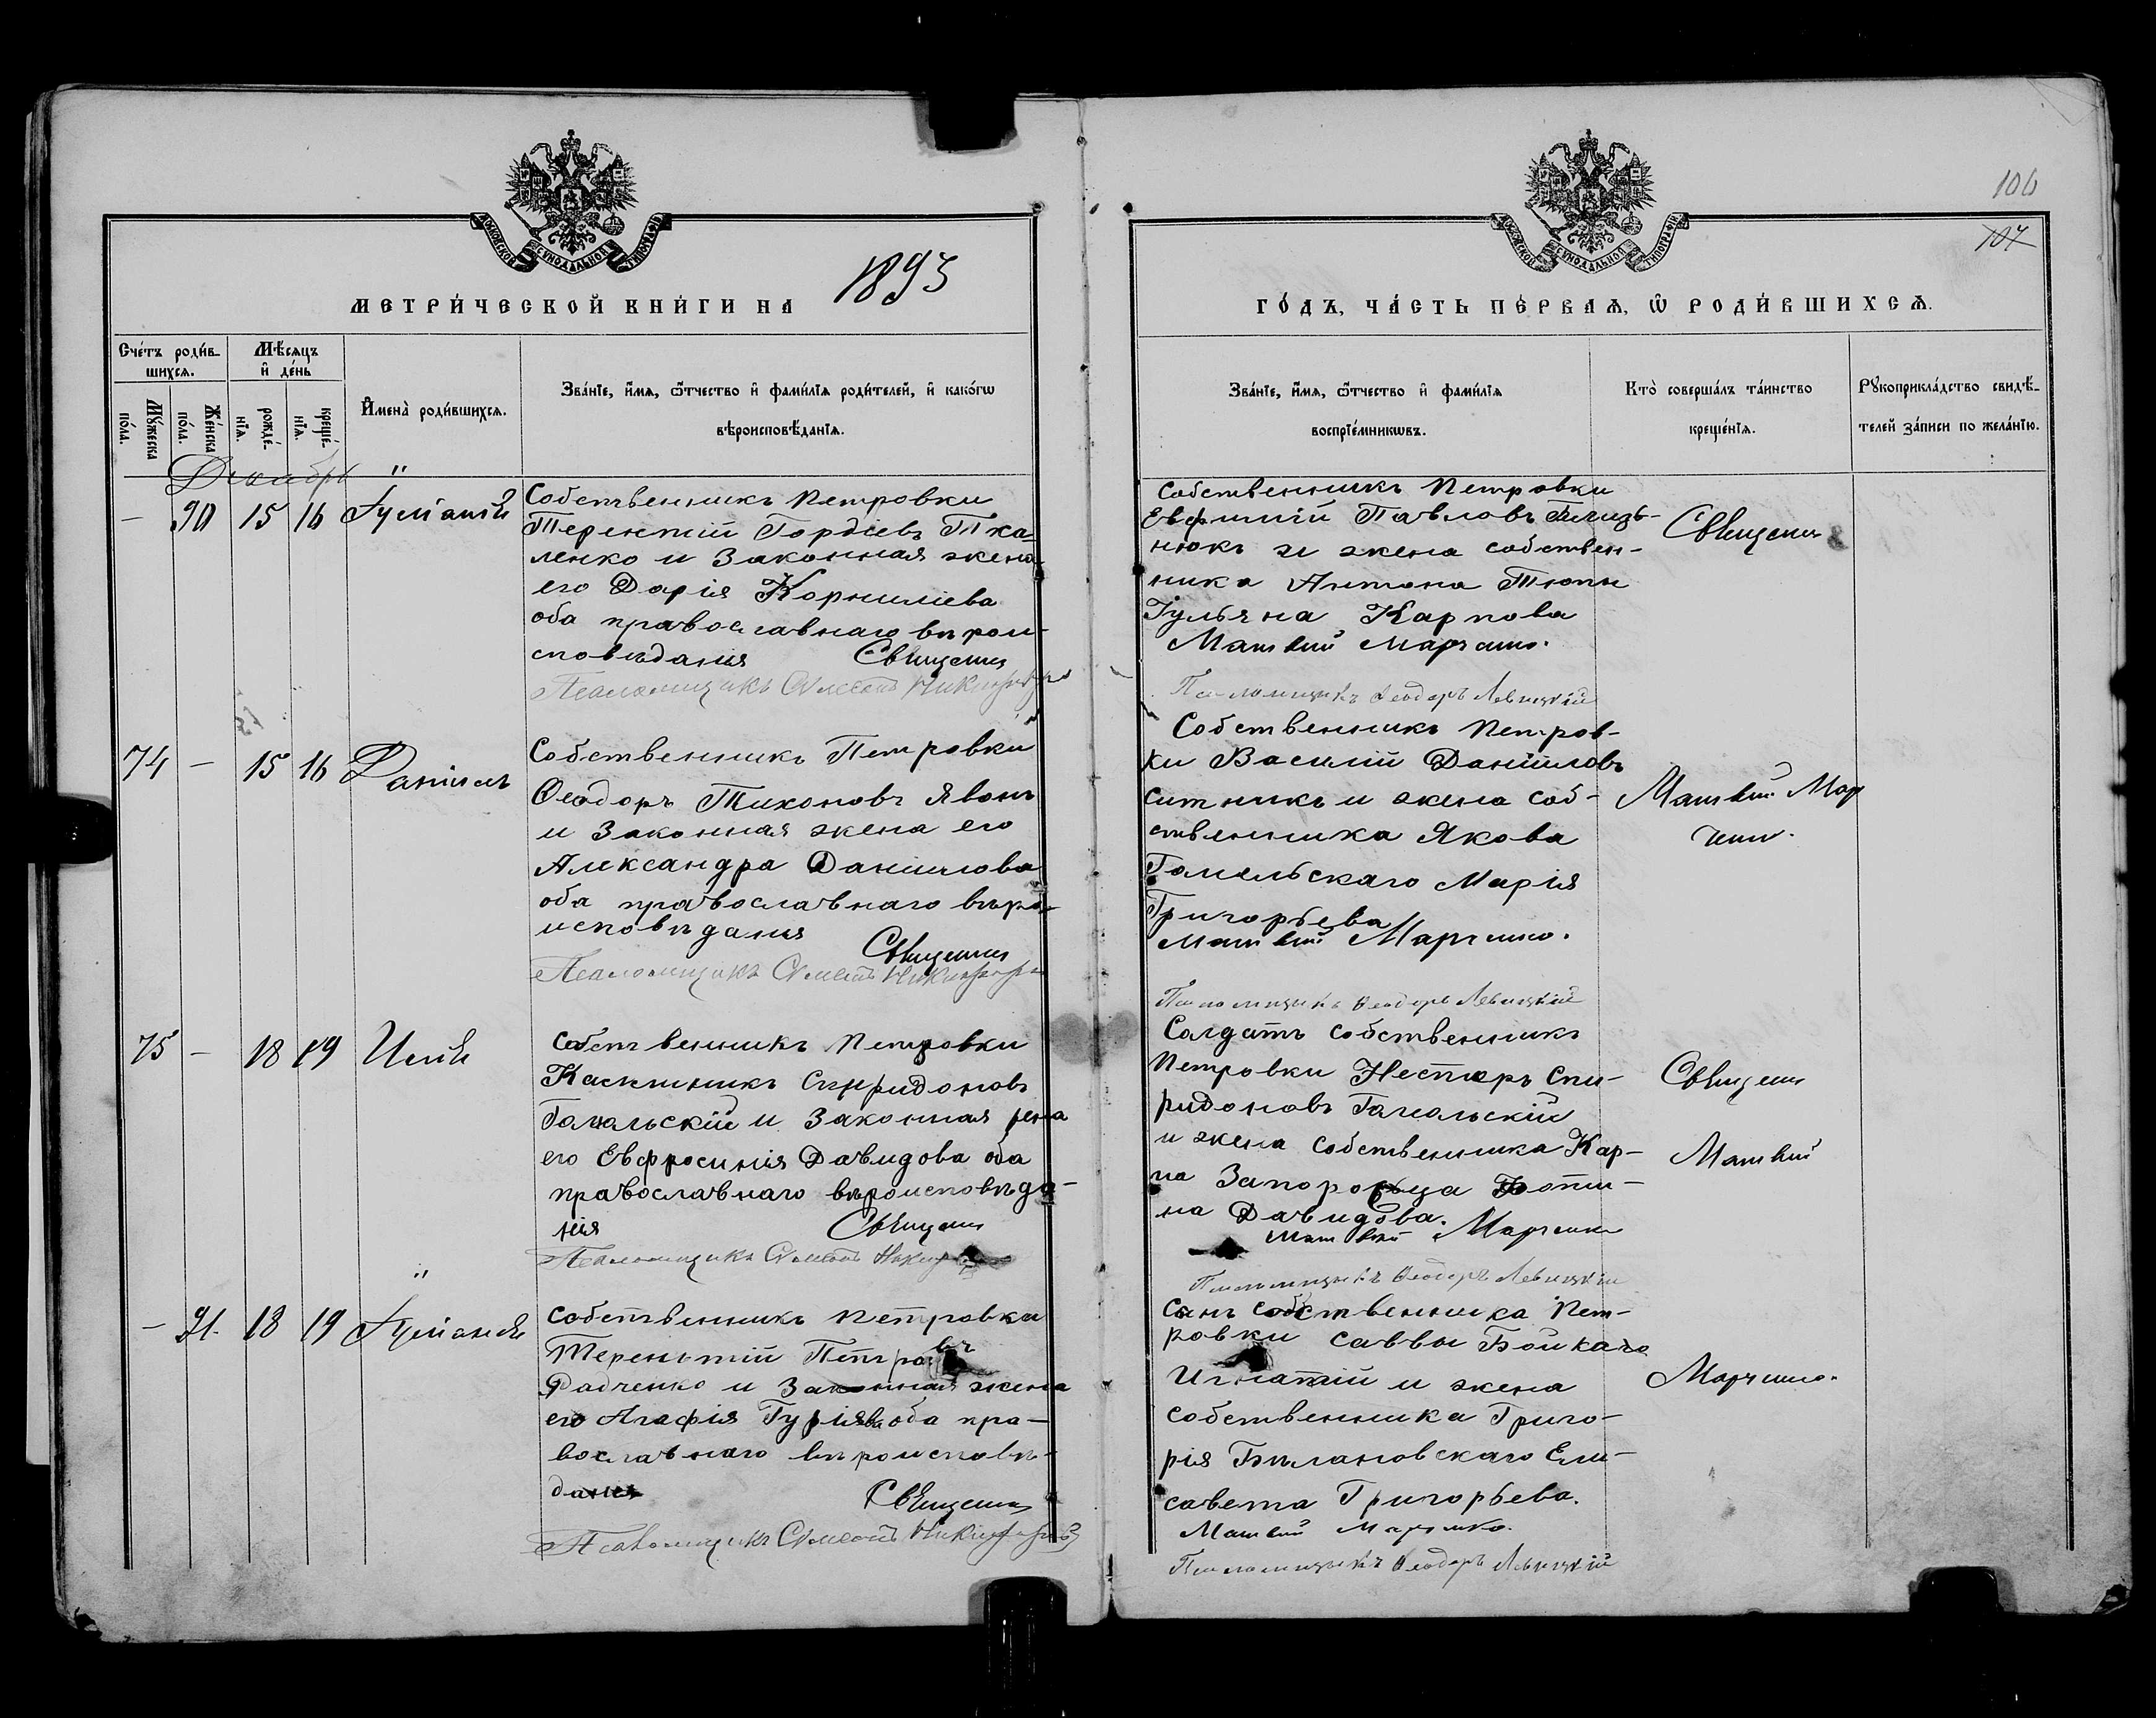 106
107
МЕТРИ́ЧЕСКОЙ КНИ́ГИ НА 1893
ГО́ДЪ, ЧА́СТЬ ПЕ́РВАѦ, Ѿ РОДИ́ВШИХСѦ.
МОСКОВСКОЙ СѴНОДАЛЬНОЙ ТИПОГРАФІИ
МОСКОВСКОЙ СѴНОДАЛЬНОЙ ТИПОГРАФІИ
Сче́тъ роди́в-
шихсѧ.
Мѣ́сѧцъ
и҆ де́нь
Мꙋ́жеска
по́ла.
Же́нска
по́ла.
рожде́-
нїѧ.
креще́-
нїѧ.
И҆мена̀ роди́вшихсѧ.
Зва́нїе, и҆́мѧ, ѻ҆́тчество и҆ фами́лїѧ роди́телей, и҆ како́гѡ
вѣроисповѣ́данїѧ.
Зва́нїе, и҆́мѧ, ѻ҆́тчество и҆ фами́лїѧ
воспрїе́мникѡвъ.
Кто̀ соверша́лъ та́инство
креще́нїѧ.
Рꙋкоприкла́дство свидѣ́-
телей за́писи по жела́нїю.
Декабрь
— 90 15 16 Іуліанія
Собственникъ Петровки
Терентій Гордіевъ Тка-
ленко и законная жена
его Дарія Корниліева
оба православнаго вѣрои-
сповѣданія Священ
Псаломщикъ Симеонъ Никифоровъ
Собственникъ Петровки
Евфимій Павловъ
нюкъ и жена собствен-
ника Антона Тюпы
Іульяна Карпова
Матвій Марченко.
Псаломщикъ Ѳеодоръ Левицкій
Священ
74 — 15 16 Даніилъ
Собственникъ Петровки
Ѳеодоръ Тихоновъ Явонъ
и законная жена его
Александра Данилова
оба православнаго вѣро-
исповѣданія
Священ
Псаломщикъ Симеонъ Никифоровъ
Собственникъ Петров-
ки Василій Даніиловъ
Ситникъ и жена соб-
ственника Якова
Гомельскаго Марія
Григорьева
Матвій Марченко.
Псаломщикъ Ѳеодоръ Левицкій
Матвій Мар
ченко.
75 — 18 19 Илія
Собственникъ Петровки
Спиридоновъ
Гамальскій и законная жена
его Евфросинія Давидова оба
православнаго вѣроисповѣда-
нія Священ
Псаломщикъ Симеонъ
Солдатъ собственникъ
Петровки Несторъ Спи-
ридоновъ Гамальскій
и жена собственника Кар-
па Запорожца Фоти-
на Давидова.
Матвій Марченко
Псаломщикъ Ѳеодоръ Левицкій
Священ
Матвій
— 91. 18 19 Іуліанія
Собственникъ Петровки
Терентій Петровъ
Радченко и законная жена
его Агафія Гуріева оба пра-
вославнаго вѣроисповѣ-
данія
Священ
Псаломщикъ Симеонъ Никифоровъ
Сынъ собственника Пет-
ровки Саввы Бойкаго
Игнатій и жена
собственника Григо-
рія Бѣлановскаго Ели-
савета Григорьева.
Матвій Марченко.
Псаломщикъ Ѳеодоръ Левицкій
Марченко.